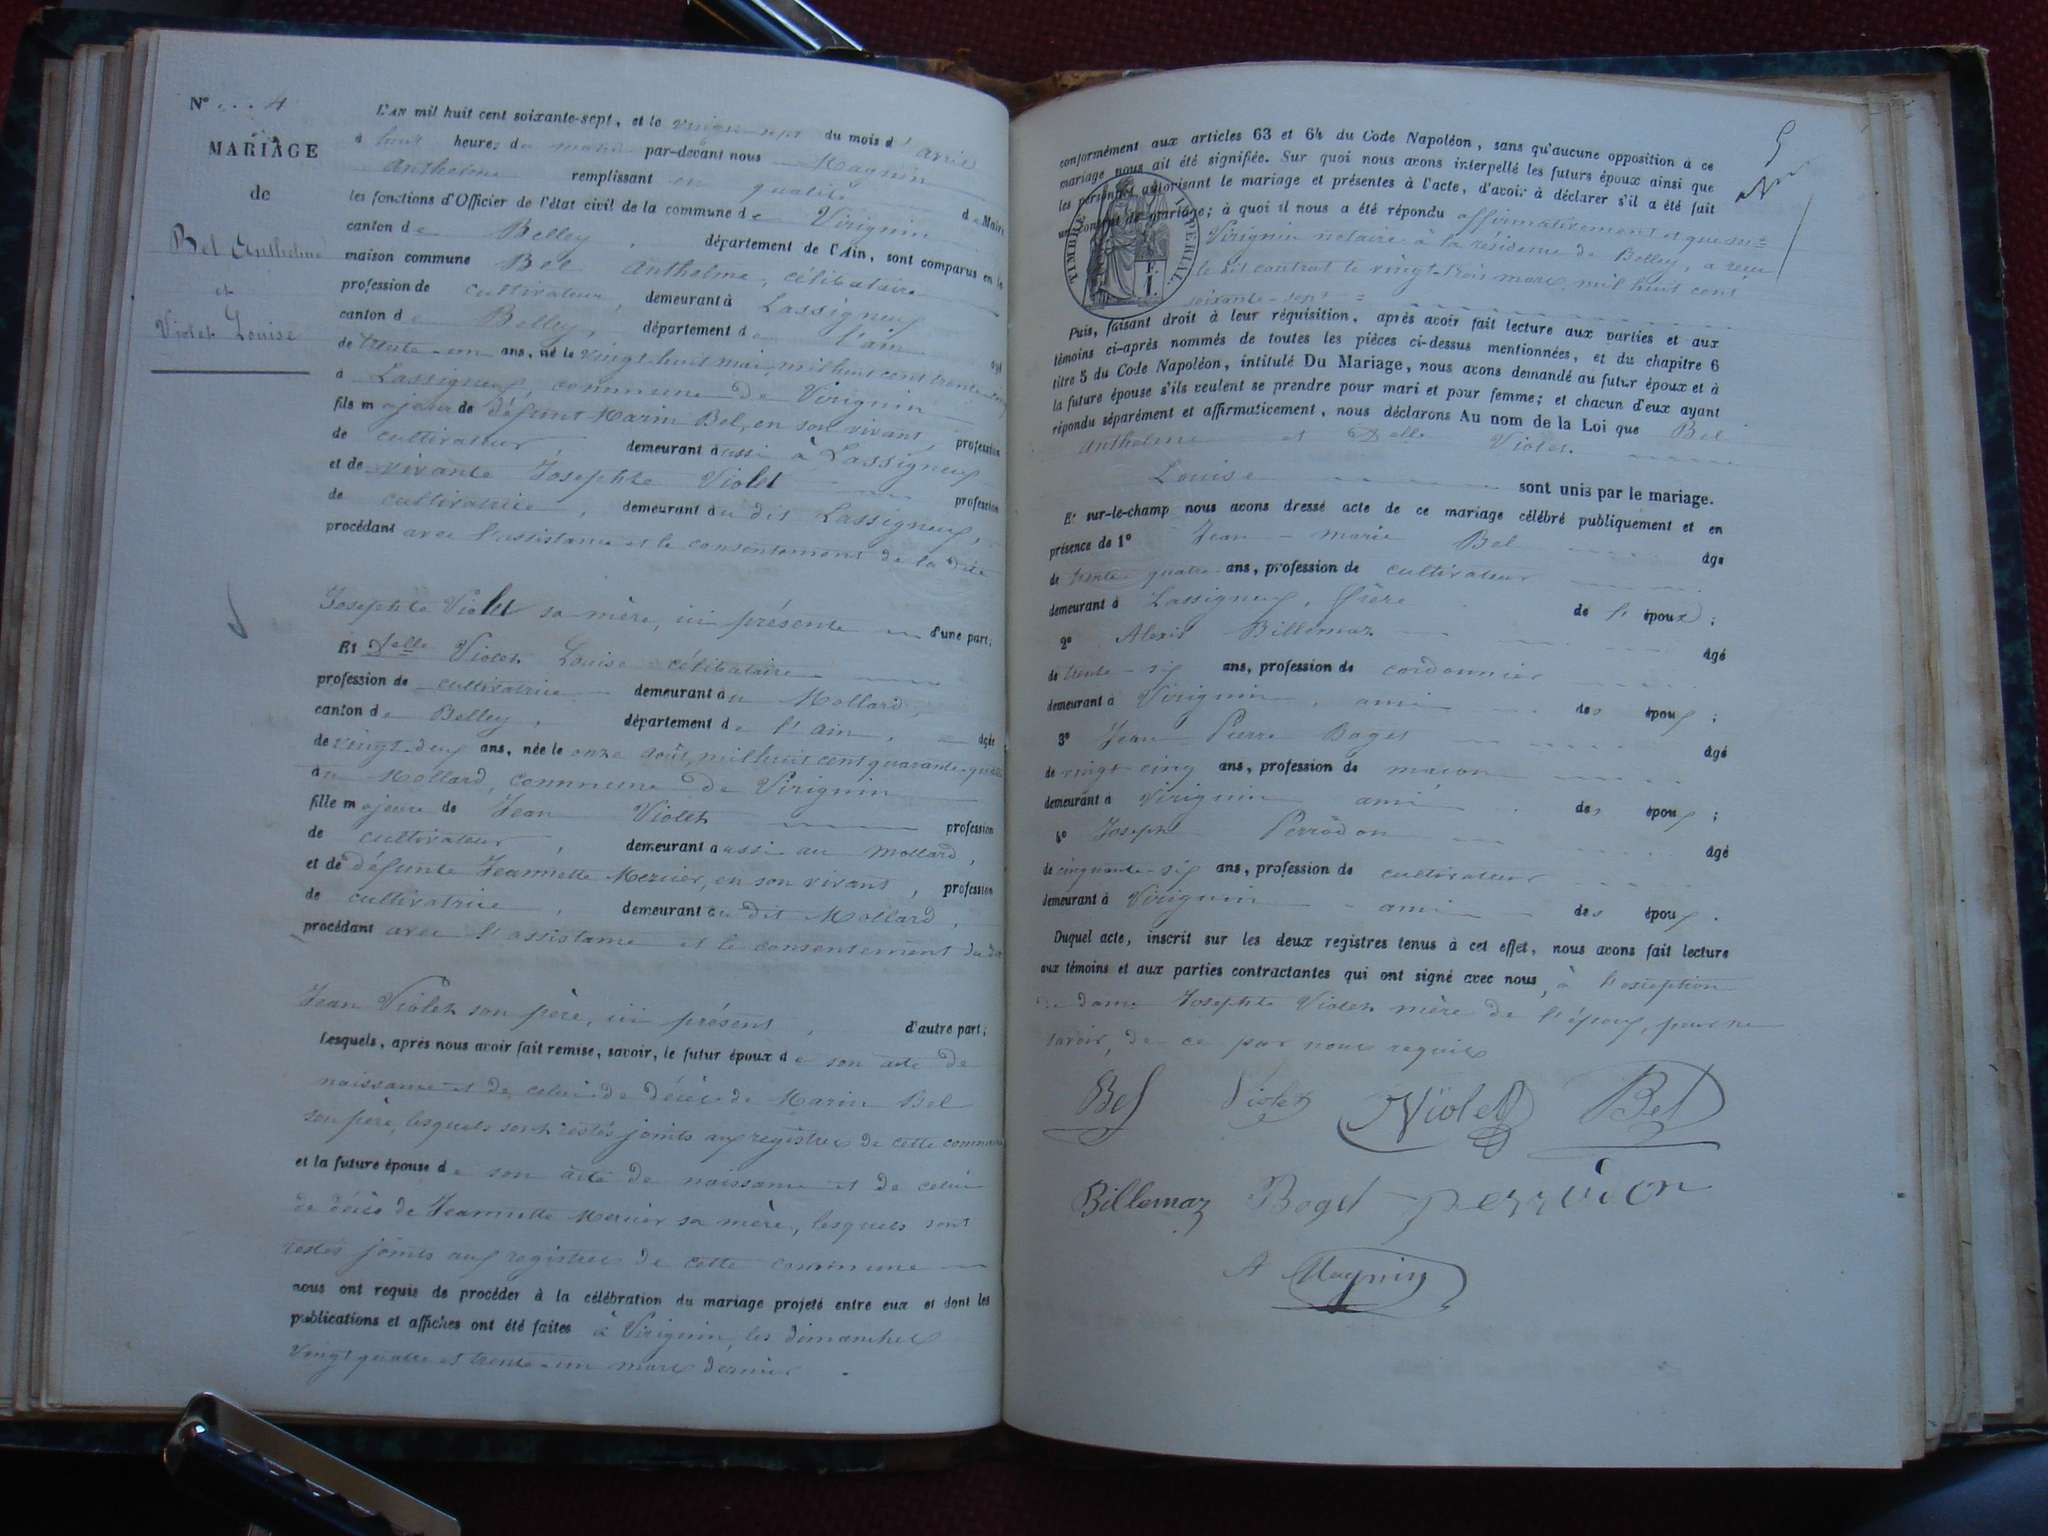 N° 4
MARIAGE
de
Bel Anthelme
et
Violet Louise
L'AN mil huit cent soixante-sept, et le vingt-sept du mois d'avril
à huit heures du matin par-devant nous Magnin
Anthelme remplissant en qualité de Maire
les fonctions d'Officier de l'état civil de la commune de Virignin
canton de Belley, département de l'Ain, sont comparus en la
maison commune Bel Anthelme, célibataire
profession de cultivateur, demeurant à Lassigneux
canton de Belley, département de l'ain âgé
de trente-un ans, né le vingt-huit mai, mil huit cent trente
à Lassigneux, commune de Virignin
fils majeur de défunt Marin Bel, en son vivant, profession
de cultivateur, demeurant aussi à Lassigneux
et de vivante Josephte Violet profession
de cultivatrice, demeurant au dit Lassigneux,
procédant avec l'assistance et le consentement de la dite
Josephte Violet sa mère, ici présente d'une part;
Et Delle Violet Louise célibataire
profession de cultivatrice demeurant au Mollard,
canton de Belley, département de l'ain, âgée
de vingt-deux ans, née le onze août, mil huit cent quarante-quatre
au Mollard, commune de Virignin
fille majeure de Jean Violet profession
de cultivateur, demeurant aussi au mollard,
et de défunte Jeannette Mercier, en son vivant, profession
de cultivatrice, demeurant au dit Mollard,
procédant avec l'assistance et le consentement du dit
Jean Violet son père, ici présent, d'autre part;
Lesquels, après nous avoir fait remise, savoir, le futur époux de son acte de
naissance et de celui de décès de Marin Bel
son père, lesquels sont restés joints aux registres de cette commune
et la future épouse de son acte de naissance et de celui
de décès de Jeannette Mercier sa mère, lesquels sont
restés joints aux registres de cette commune
nous ont requis de procéder à la célébration du mariage projeté entre eux et dont les
publications et affiches ont été faites à Virignin, les dimanches
vingt quatre et trente-un mars dernier.
5
conformément aux articles 63 et 64 du Code Napoléon, sans qu'aucune opposition à ce
mariage nous ait été signifiée. Sur quoi nous avons interpellé les futurs époux ainsi que
les personnes autorisant le mariage et présentes à l'acte, d'avoir à déclarer s'il a été fait
un contrat de mariage; à quoi il nous a été répondu affirmativement et que me
Virignin notaire à la résidence de Belley, a reçu
le dit contrat le vingt-trois mars, mil huit cent
soixante-sept
TIMBRE IMPÉRIAL
Puis, faisant droit à leur réquisition, après avoir fait lecture aux parties et aux
témoins ci-après nommés de toutes les pièces ci-dessus mentionnées, et du chapitre 6
titre 5 du Code Napoléon, intitulé Du Mariage, nous avons demandé au futur époux et à
la future épouse s'ils veulent se prendre pour mari et pour femme; et chacun d'eux ayant
répondu séparément et affirmativement, nous déclarons Au nom de la Loi que Bel
Anthelme et Delle Violet
Louise sont unis par le mariage.
Et sur-le-champ nous avons dressé acte de ce mariage célébré publiquement et en
présence de 1° Jean-marie Bel âgé
de trente-quatre ans, profession de cultivateur
demeurant à Lassigneux, frère de l'époux;
2° Alexis Billemaz âgé
de trente-six ans, profession de cordonnier
demeurant à Virignin, ami des époux;
3° Jean Pierre Baget âgé
de vingt-cinq ans, profession de maçon
demeurant à Virignin ami des époux;
4° Joseph Perrodon âgé
de cinquante-six ans, profession de cultivateur
demeurant à Virignin ami des époux.
Duquel acte, inscrit sur les deux registres tenus à cet effet, nous avons fait lecture
aux témoins et aux parties contractantes qui ont signé avec nous, à l'exception
de dame Josephte Violet mère de l'époux, pour ne
savoir, de ce par nous requis
Bel Violet Violet Bel
Billemaz Baget perrodon
A Magnin